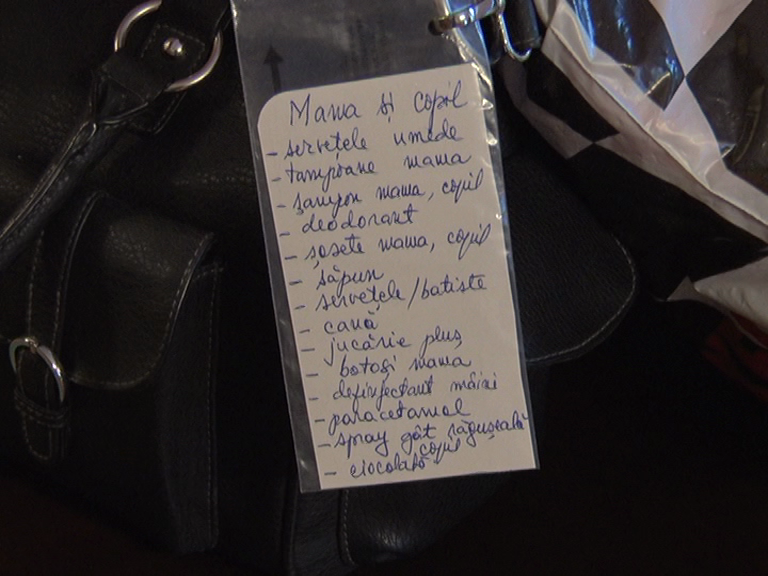 Mama și copil
- servețele umede
- tampoane mama
- șampon mama, copil
- deodorant
- șosete mama, copil
- săpun
- servețele/batiste
- cană
- jucărie pluș
- botoși mama
- dezinfectant mâini
- paracetamol
- spray gât răgușeală
- ciocolată copil